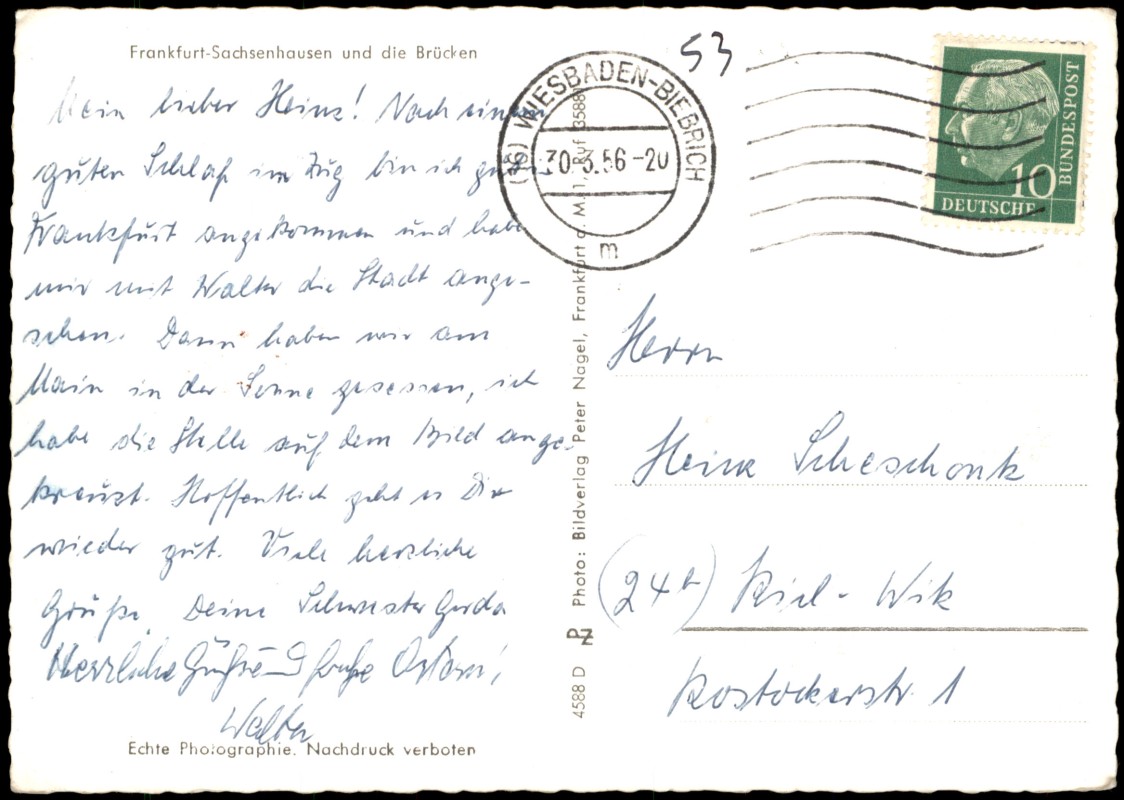 Frankfurt-Sachsenhausen und die Brücken
Mein lieber Heinz! Nach einem
guten Schlaf im Zug bin ich gut
Frankfurt angekommen und habe
mir mit Walter die Stadt ange-
sehen. Dann haben wir am
Main in der Sonne gesessen, ich
habe die Stelle auf dem Bild ange-
kreuzt. Hoffentlich geht es Dir
wieder gut. Viele herzliche
Grüße, Deine Schwester Gerda
Herzliche Grüße u frohe Ostern!
Walter
Echte Photographie. Nachdruck verboten
4588 D
Photo: Bildverlag Peter Nagel, Frankfurt a. M. 1, Ruf 35881
(16) WIESBADEN-BIEBRICH
30.3.56-20
m
53
10
DEUTSCHE
BUNDESPOST
Herrn
Heinz Scheschonk
(24b) Kiel-Wik
Rostockerstr. 1